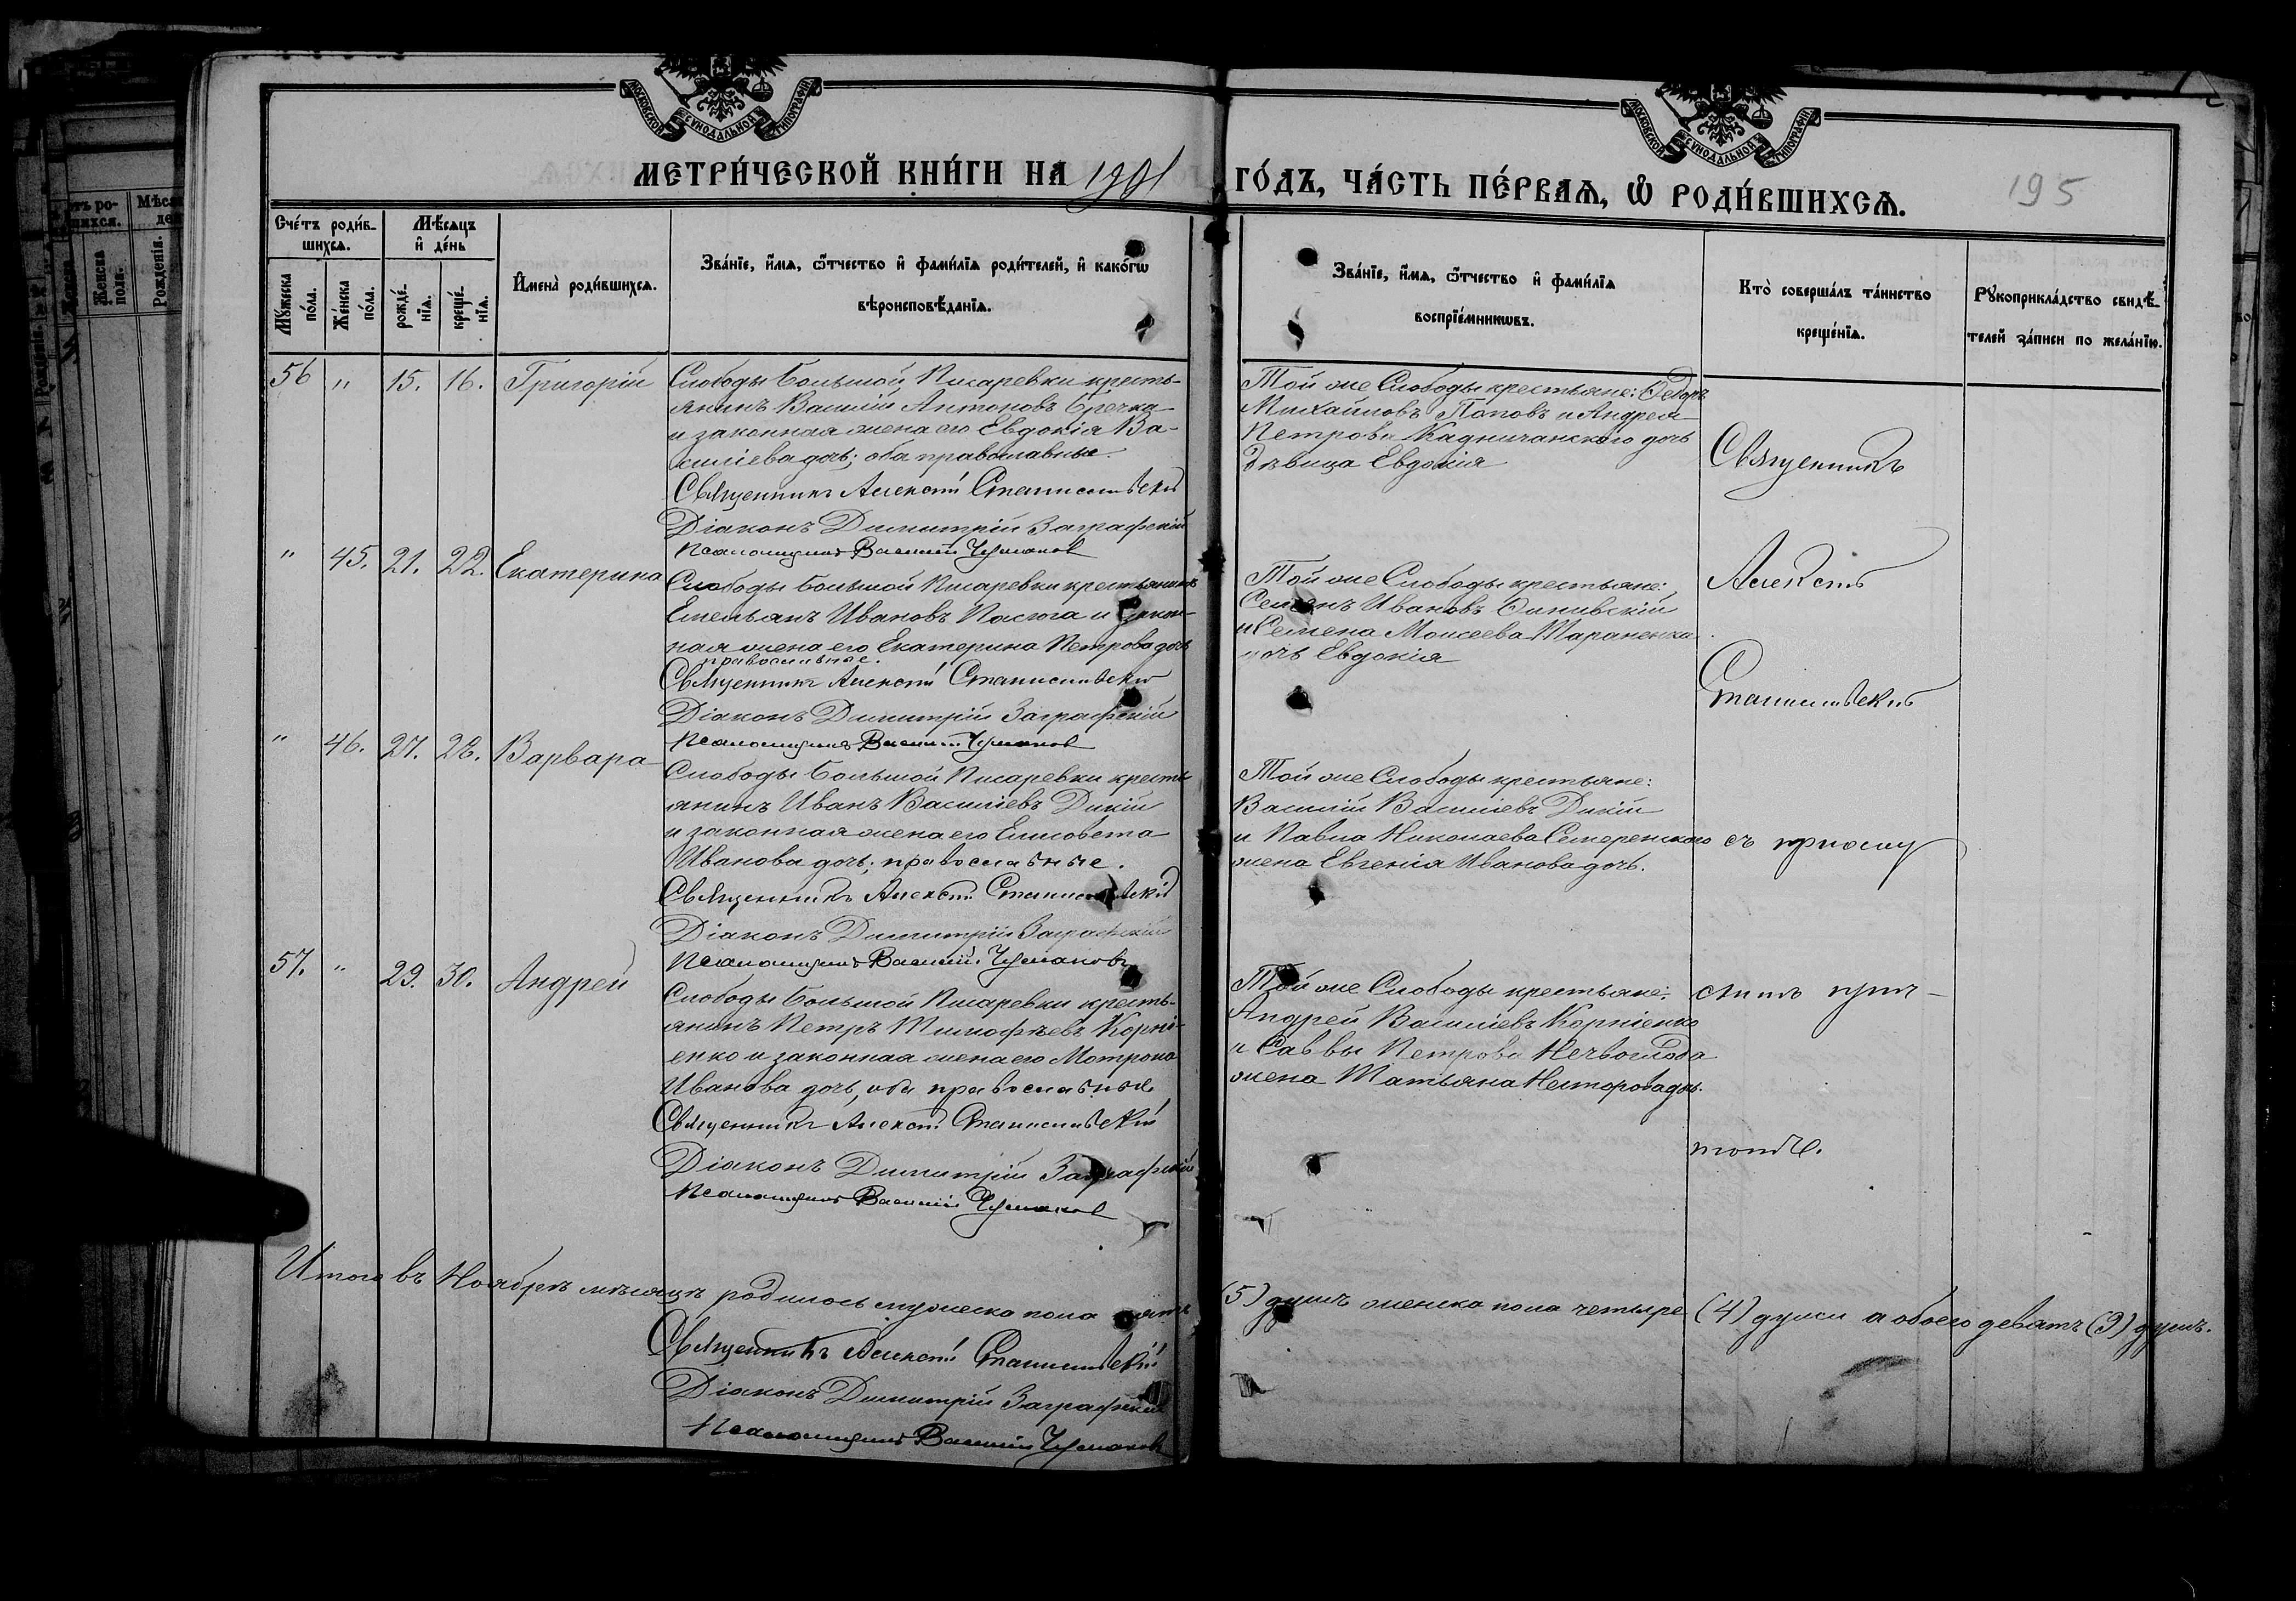 МОСКОВСКОЙ СѴНОДАЛЬНОЙ ТИПОГРАФІИ
МОСКОВСКОЙ СѴНОДАЛЬНОЙ ТИПОГРАФІИ
МЕТРИ́ЧЕСКОЙ КНИ́ГИ НА 1901 ГО́ДЪ, ЧА́СТЬ ПЕ́РВАѦ, Ѡ҆ РОДИ́ВШИХСѦ.
195
Сче́тъ роди́в-
шихсѧ.
Мѣ́сѧцъ
и҆ де́нь
Мꙋ́жеска по́ла.
Же́нска по́ла.
рожде́-
нїѧ.
креще́-
нїѧ.
И҆мена̀ роди́вшихсѧ.
Зва́нїе, и҆́мѧ, ѻ҆́тчество и҆ фами́лїѧ роди́телей, и҆ како́гѡ
вѣроисповѣ́данїѧ.
Зва́нїе, и҆́мѧ, ѻ҆́тчество и҆ фами́лїѧ
воспрїе́мникѡвъ.
Кто̀ соверша́лъ та́инство
креще́нїѧ.
Рꙋкоприкла́дство свидѣ́-
телей за́писи по жела́нїю.
56 " 15. 16. Григорій
Слободы Большой Писаревки кресть-
янинъ Василій Антоновъ Гречка
и законная жена его Евдокія Ва-
силіева дочь; оба православные.
Священникъ Алексѣй Станиславскій
Діаконъ Димитрій Заграфскій
Псаломщикъ Василій Чумаков
Той же Слободы крестьяне: Ѳедоръ
Михайловъ Поповъ и Андрея
Петрова дочь
дѣвица Евдокія
Священникъ
Алексѣй
Станиславскій
съ причту
" 45. 21. 22. Екатерина
Слободы Большой Писаревки крестьянинъ
Емельянъ Ивановъ Пасюга и закон-
ная жена его Екатерина Петрова дочь
православные.
Священникъ Алексѣй Станиславскій
Діаконъ Димитрій Заграфскій
Псаломщикъ Василій Чумаков
Той же Слободы крестьяне:
Семенъ Ивановъ
и Семена Моисеева Тараненка
дочь Евдокія
" 46. 27. 28. Варвара
Слободы Большой Писаревки кресть
янинъ Иванъ Василіевъ Дикій
и законная жена его Елисовета
Иванова дочь; православные.
Священникъ Алексѣй Станиславскій
Діаконъ Димитрій Заграфскій
Псаломщикъ Василій Чумаковъ
Той же Слободы крестьяне:
Василій Василіевъ Дикій
и Павла Николаева Семеренского
жена Евгенія Иванова дочь.
57. " 29. 30. Андрей
Слободы Большой Писаревки кресть-
янинъ Петръ Тимофѣевъ Корні-
енко и законная жена его Мотрона
Иванова дочь, оба православныя
Священникъ Алексѣй Станиславскій
Діаконъ Димитрій Заграфскій
Псаломщикъ Василій Чумаков
Той же Слободы крестьяне:
Андрей Василіевъ Корніенко
и Саввы Петрова
жена Татьяна Несторова дочь.
Итого въ Ноябрѣ мѣсяцѣ родилось мужеска пола пять (5) душъ женска пола четыре (4) души а обоего девять (9) душъ.
Священникъ Алексѣй Станиславскій
Діаконъ Димитрій Заграфскій
Псаломщикъ Василій Чумаковъ